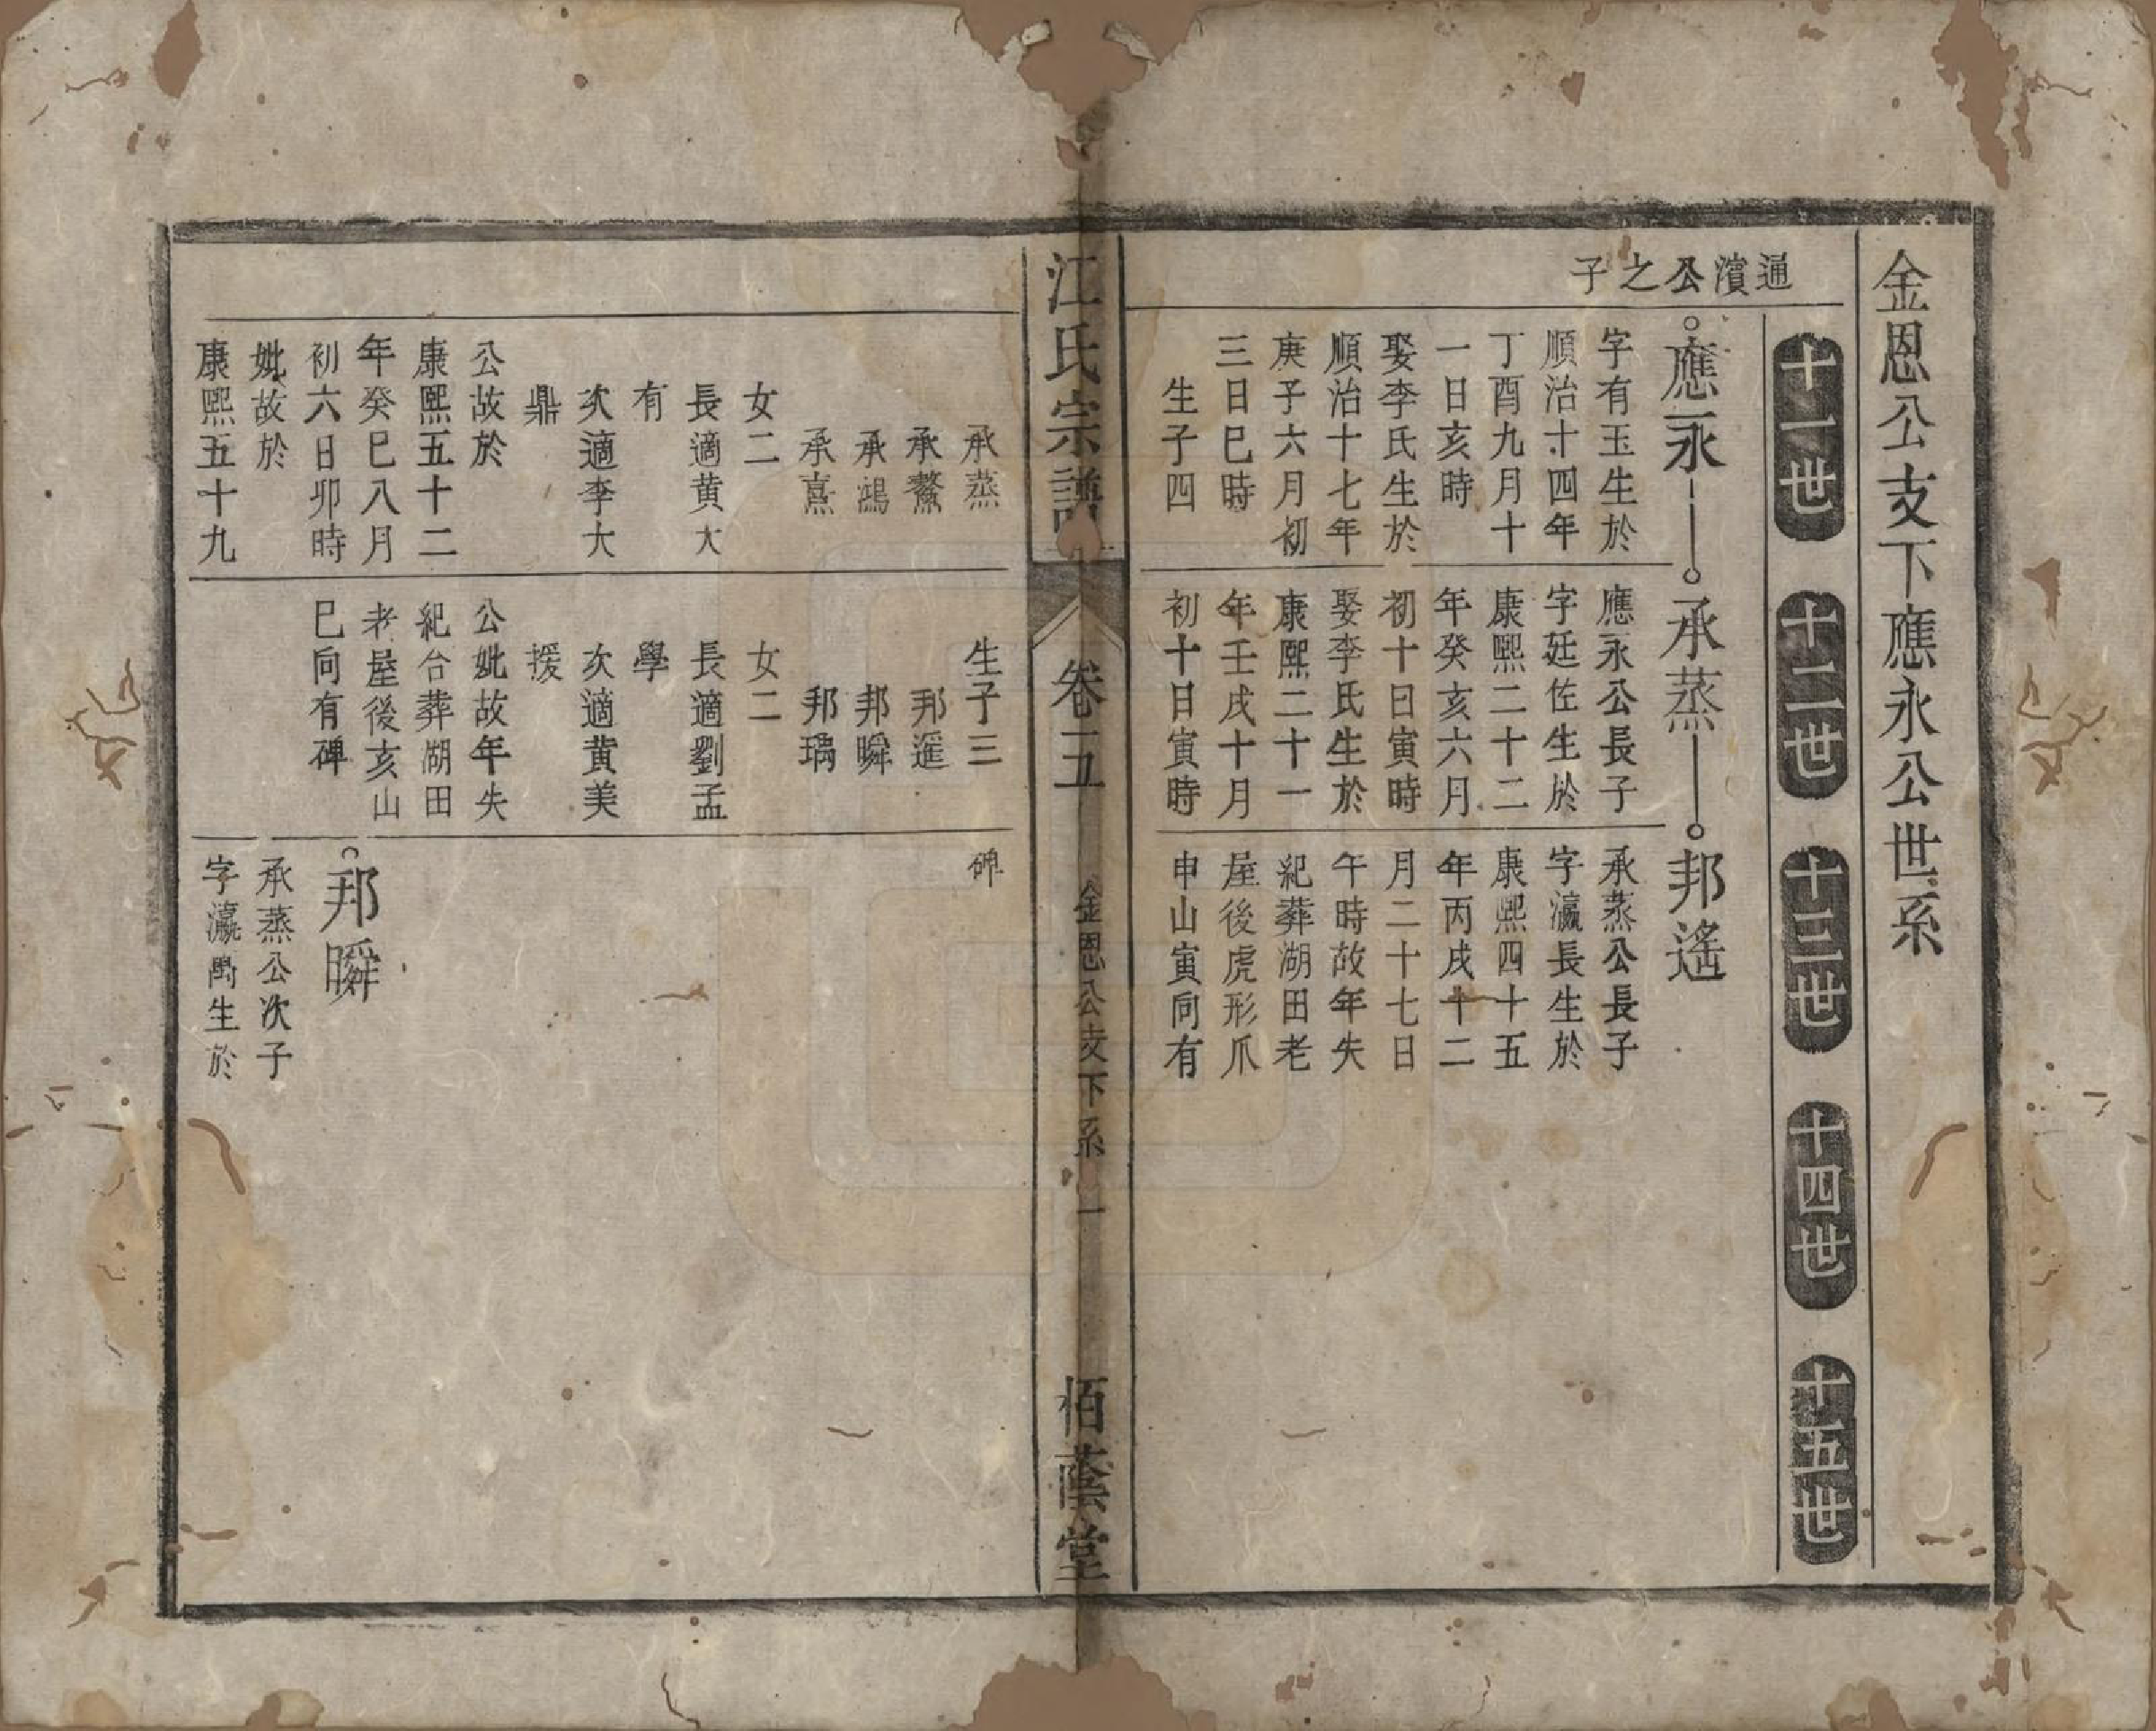 金恩公支下應永公世系
十一世
十二世
十三世
十四世
十五世
通濱公之子
應永
字有玉生於
順治十四年
丁酉九月十
一日亥時
娶李氏生於
順治十七年
庚子六月初
三日巳時
生子四
承蒸
應永公長子
字廷佐生於
康熙二十二
年癸亥六月
初十日寅時
娶李氏生於
康熙二十一
年壬戌十月
初十日寅時
邦遙
承蒸公長子
字瀛長生於
康熙四十五
年丙戌十二
月二十七日
午時故年失
紀葬湖田老
屋後虎形爪
申山寅向有
江氏宗譜
卷五
金恩公支下系
一
栢蔭堂
承蒸
承鰲
承鴻
承熹
女二
長適黃大
有
次適李大
鼎
公故於
康熙五十二
年癸巳八月
初六日卯時
妣故於
康熙五十九
生子三
邦暹
邦瞬
邦瑀
女二
長適劉孟
學
次適黃美
援
公妣故年失
紀合葬湖田
老屋後亥山
巳向有碑
碑
邦瞬
承蒸公次子
字瀛禹生於